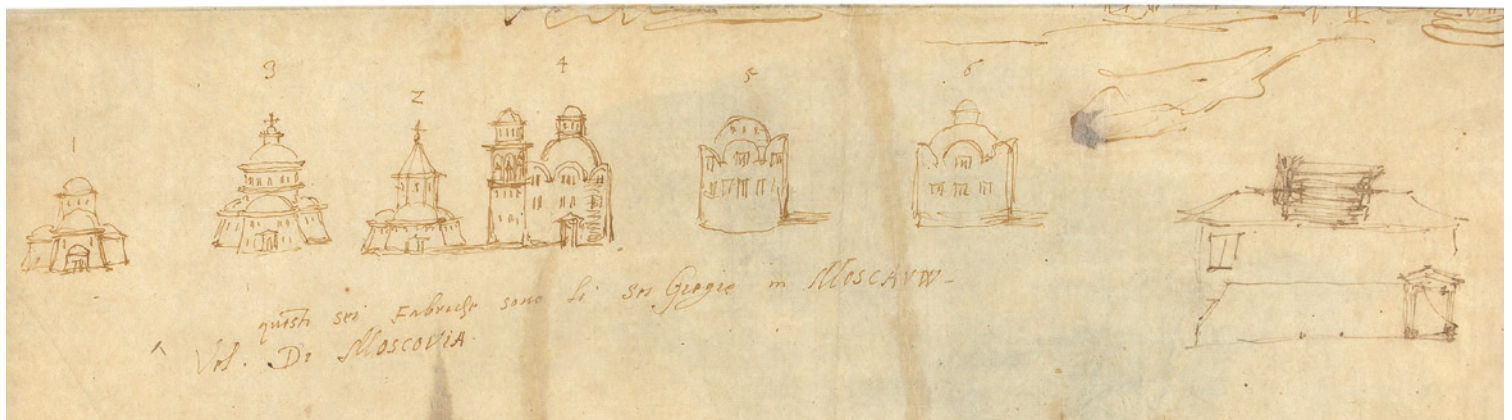 1
3
2
4
5
6
questi sei Fabriche sono li sei in MOSCAVW-
Vol. Di MOSCOVIA